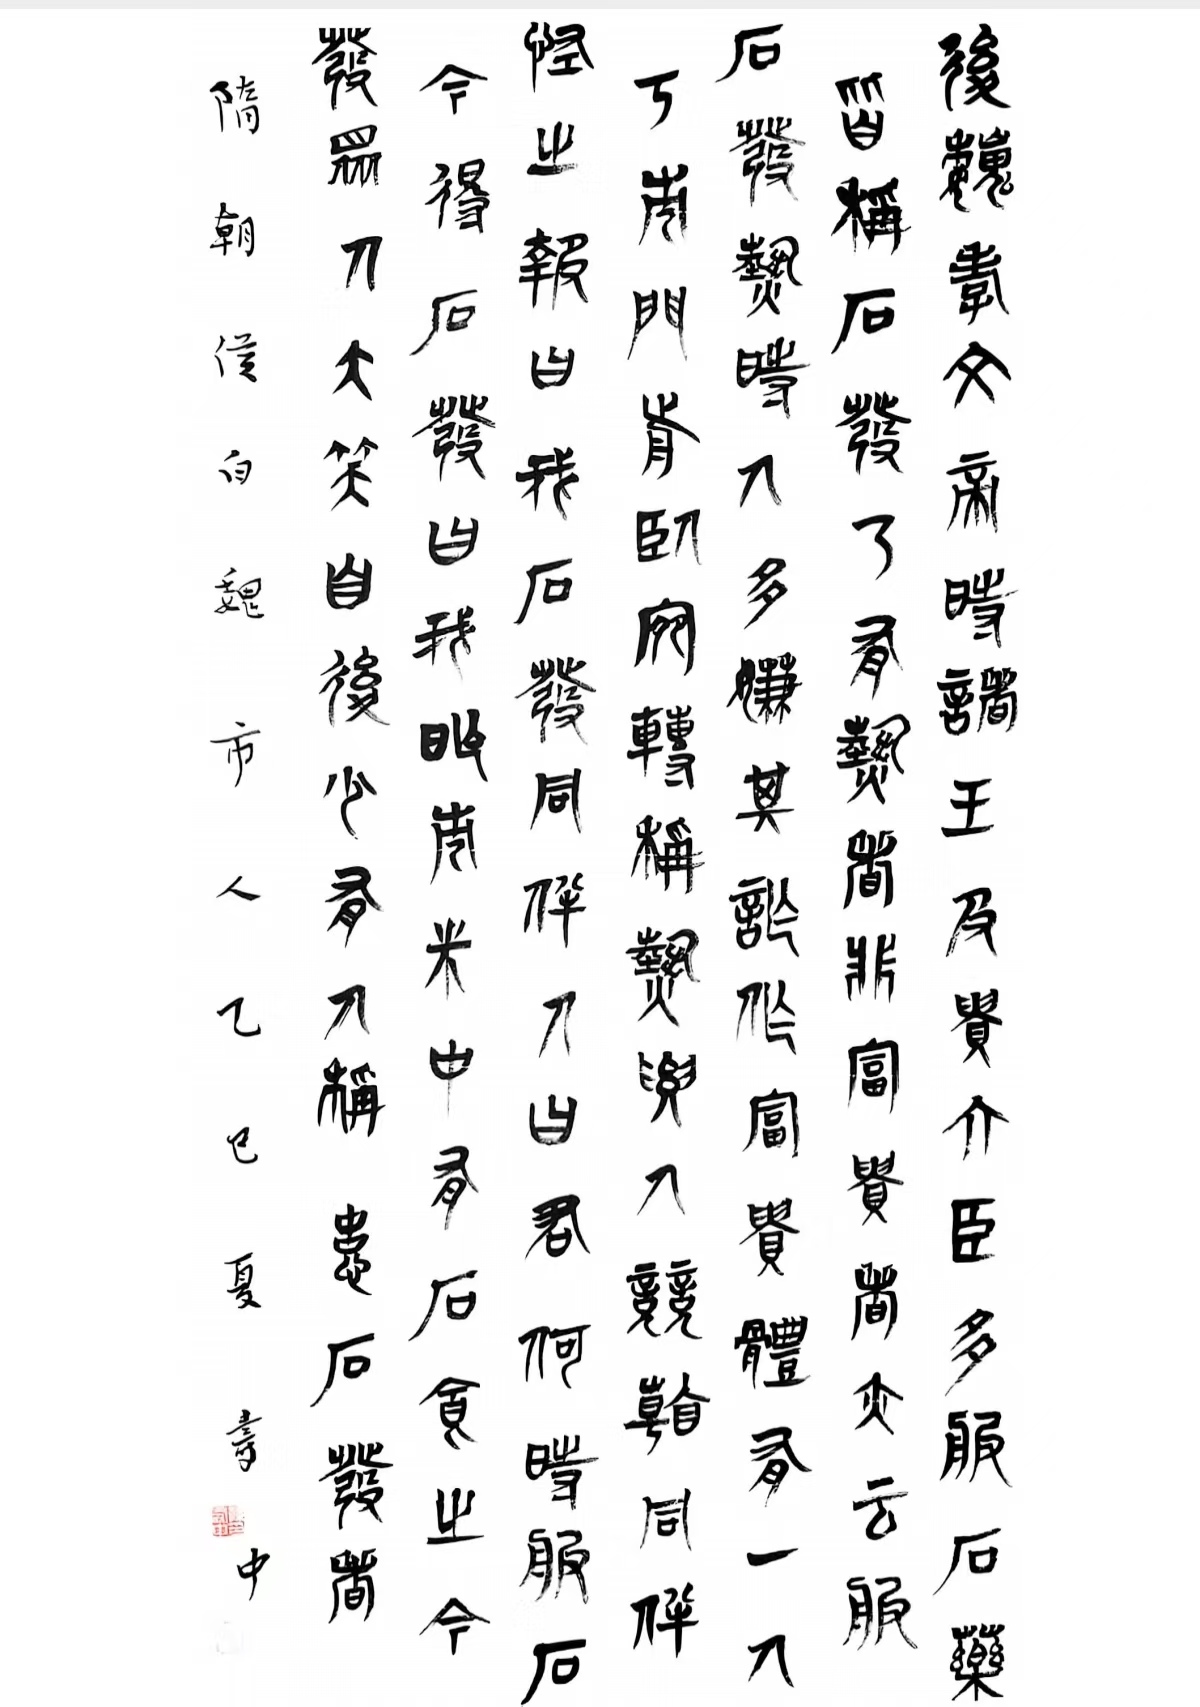 後魏孝文帝時諸王及貴介臣多服石藥
皆稱石發乃有熱者非富貴者亦云服
石發熱時人多嫌其詐作富貴體有一人
于市門前臥宛轉稱熱與人競看同伴
怪之報曰我石發同伴人曰君何時服石
今得石發曰我昨市米中有石食之今
發眾人大笑自後少有人稱患石發者
隋朝侯白魏市人乙巳夏 中